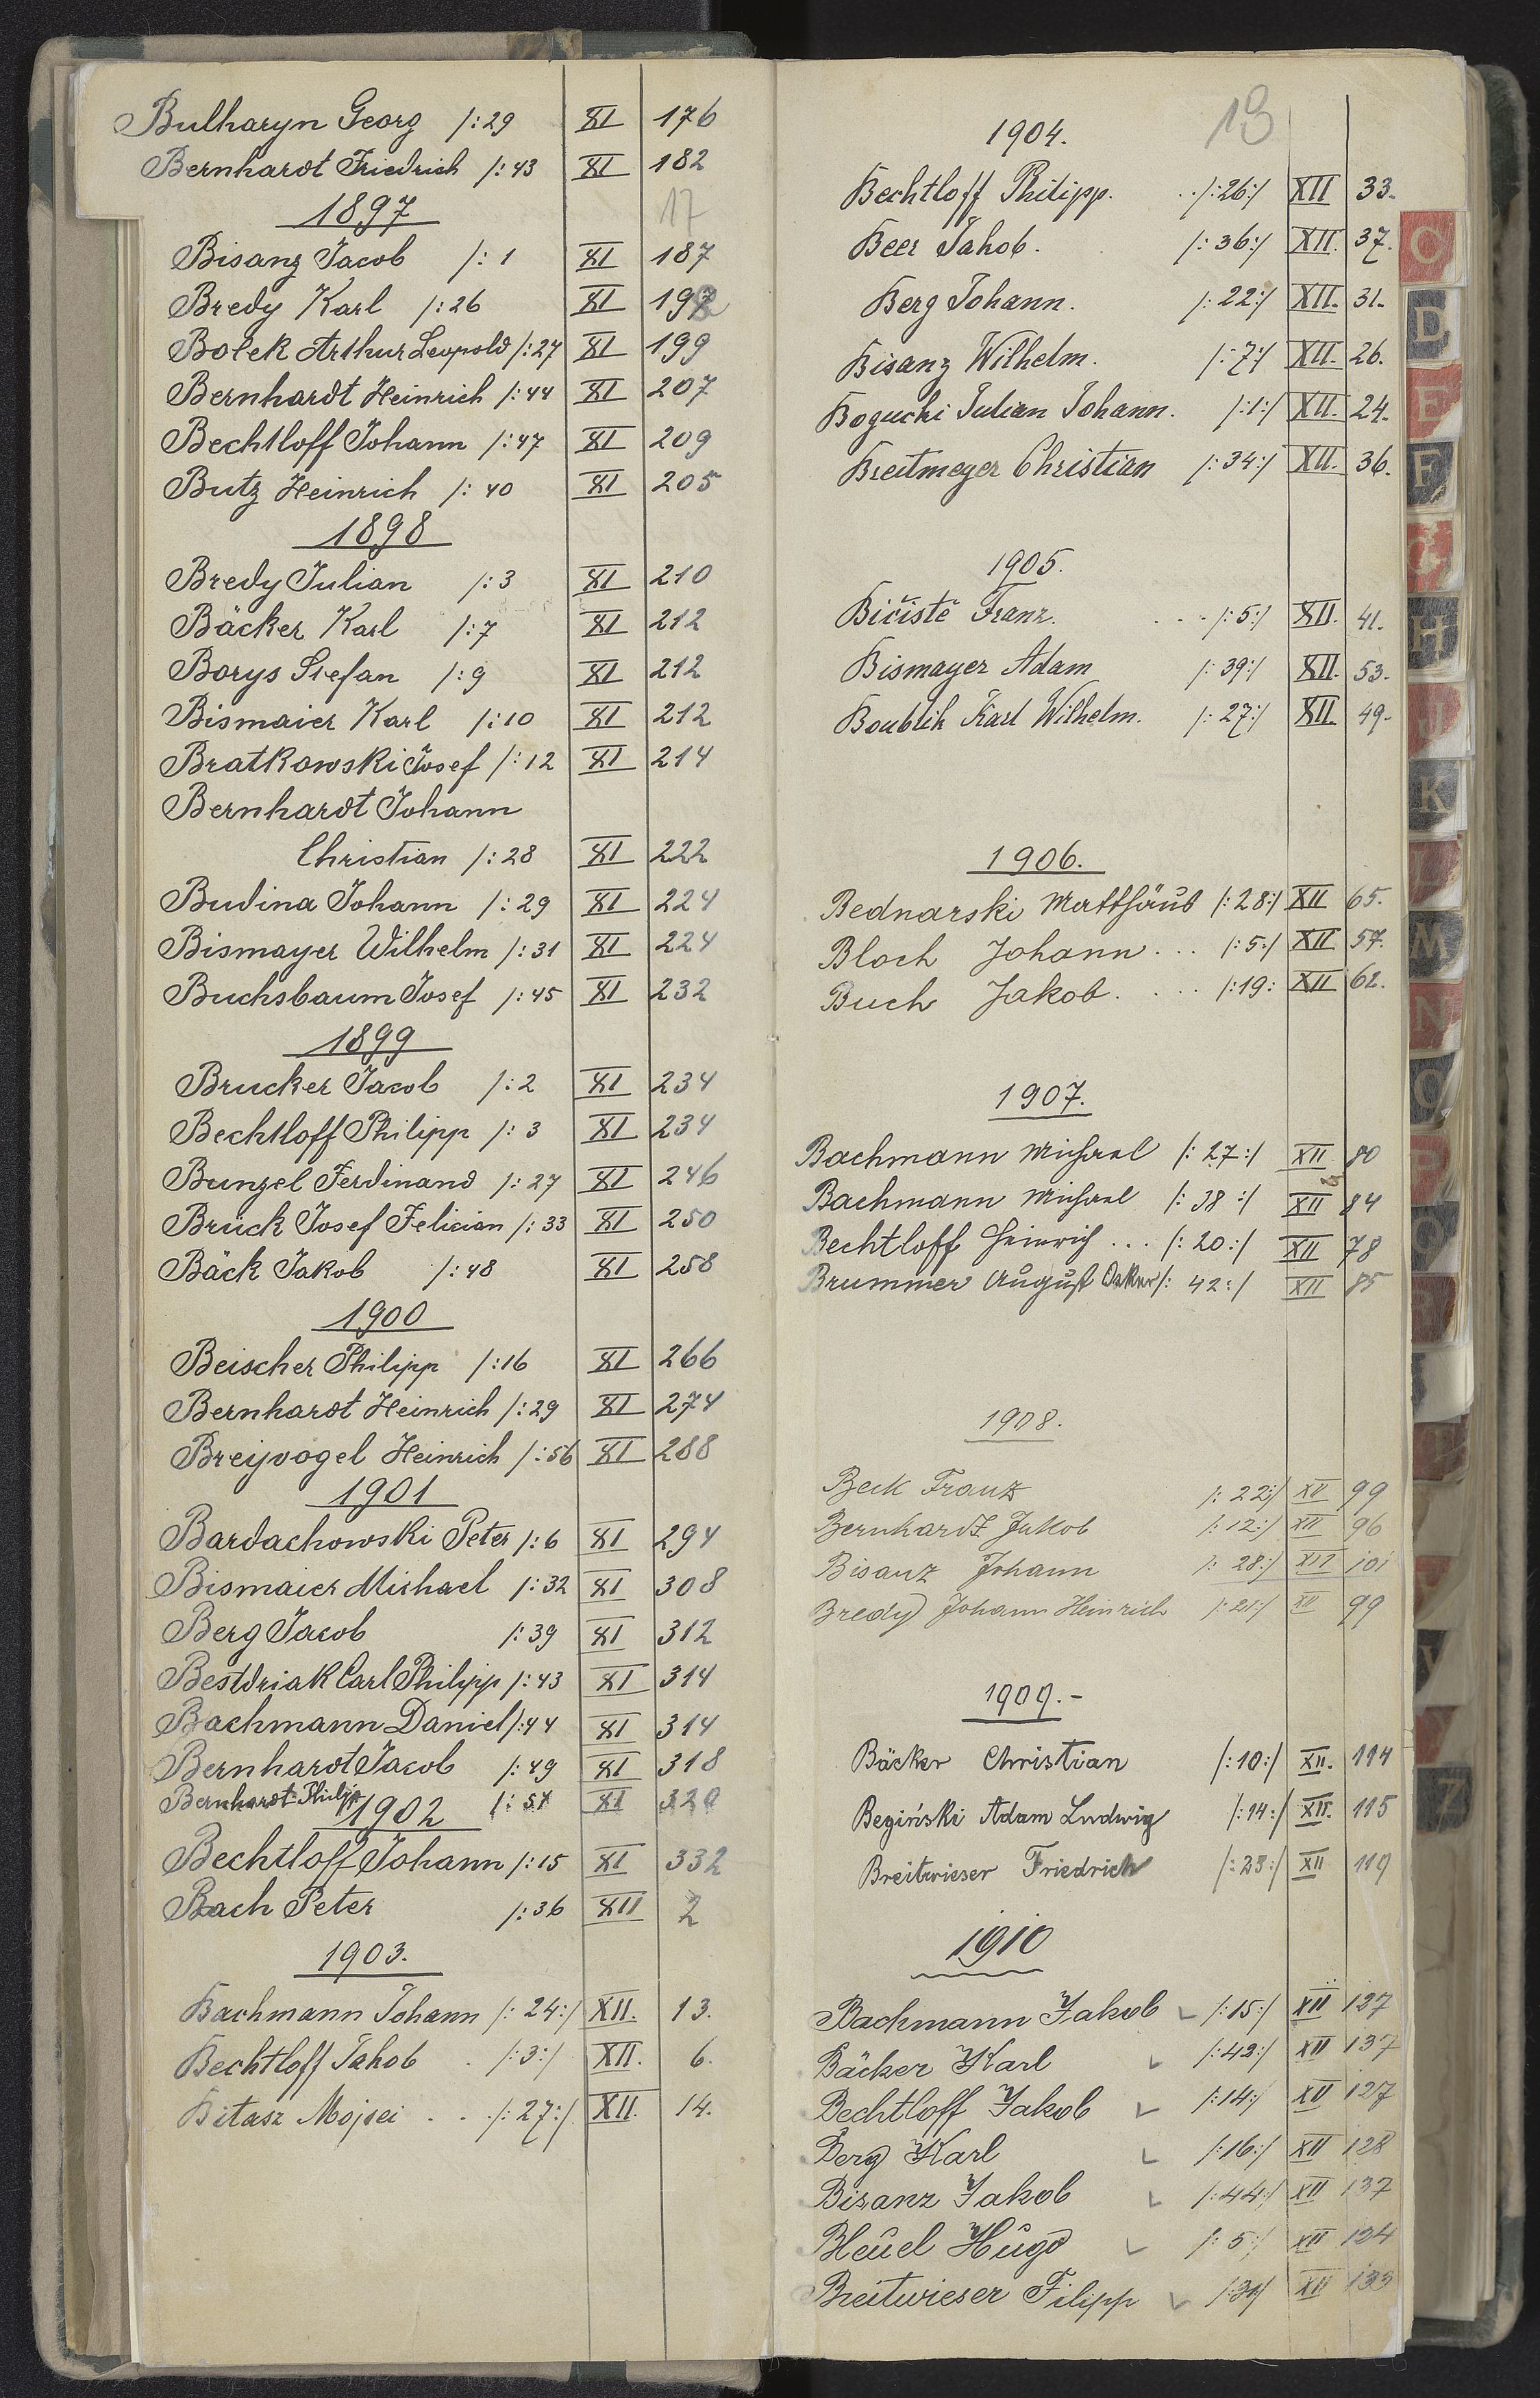 Bulharyn Georg /:29 XI 176
Bernhardt Friedrich /:43 XI 182
17
1897
Bisanz Jacob /:1 XI 187
Bredy Karl /:26 XI 198
Bolek Arthur Leopold /:27 XI 199
Bernhardt Heinrich /:44 XI 207
Bechtloff Johann /:47 XI 209
Butz Heinrich /:40 XI 205
1898
Bredy Julian /:3 XI 210
Bäcker Karl /:7 XI 212
Borys Stefan /:9 XI 212
Bismaier Karl /:10 XI 212
Bratkowski Josef /:12 XI 214
Bernhardt Johann
Christian /:28 XI 222
Budina Johann /:29 XI 224
Bismayer Wilhelm /:31 XI 224
Buchsbaum Josef /:45 XI 232
1899
Brucker Jacob /:2 XI 234
Bechtloff Philipp /:3 XI 234
Bunzel Ferdinand /:27 XI 246
Brück Josef Felician /:33 XI 250
Bäck Jakob /:48 XI 258
1900
Beischer Philipp /:16 XI 266
Bernhardt Heinrich /:29 XI 274
Breyvogel Heinrich /:56 XI 288
1901
Bardachowski Peter /:6 XI 294
Bismaier Michael /:32 XI 308
Berg Jacob /:39 XI 312
Bestdriak Carl Philipp /:43 XI 314
Bachmann Daniel /:44 XI 314
Bernhardt Jacob /:49 XI 318
Bernhardt Philip /: XI 320
1902
Bechtloff Johann /:15 XI 332
Bach Peter /:36 XII 2
1903.
Bachmann Johann /:24:/ XII. 13.
Bechtloff Jakob . /:3:/ XII. 6.
Bitasz Mojsei . . ./:27:/ XII. 14.
13
1904.
Bechtloff Philipp. . . /:26:/ XII 33.
Beer Jakob. /:36:/ XII. 37.
Berg Johann. /:22:/ XII. 31.
Bisanz Wilhelm. /:7:/ XII. 26.
Bogucki Julian Johann. /:1:/ XII. 24.
Breitmeyer Christian /:34:/ XII. 36.
1905.
Bičiště Franz. . . . /:5:/ XII. 41.
Bismayer Adam /:39:/ XII. 53.
Boublik Karl Wilhelm. /:27:/ XII. 49.
1906.
Bednarski Matthäus /:28:/ XII 65.
Bloch Johann . . . /:5:/ XII 57.
Buch Jakob . . . . /:19: XII 62.
1907.
Bachmann Michael /:27:/ XII 80
Bachmann Michael /:38:/ XII 84
Bechtloff Heinrich . . . /:20:/ XII 78
Brummer August Oskar /:42:/ XII 85
1908.
Beck Franz /:22:/ XII 99
Bernhardt Jakob /:12:/ XII 96
Bisanz Johann /:28:/ XII 101
Bredy Johann Heinrich /:21:/ XII 99
1909.-
Bäcker Christian /:10:/ XII. 114
Begiński Adam Ludwig /:14:/ XII. 115
Breitwieser Friedrich /:23:/ XII 119
1910
Bachmann Jakob /:15:/ XII 127
Bäcker Karl /:42:/ XII 137
Bechtloff Jakob /:14:/ XII 127
Berg Karl /:16:/ XII 128
Bisanz Jakob /:44:/ XII 137
Bleuel Hugo /:5:/ XII 124
Breitwieser Filipp /:31/ XII 133
C
D
E
F
G
H
J
K
L
M
N
O
P
Q
R
V
Z